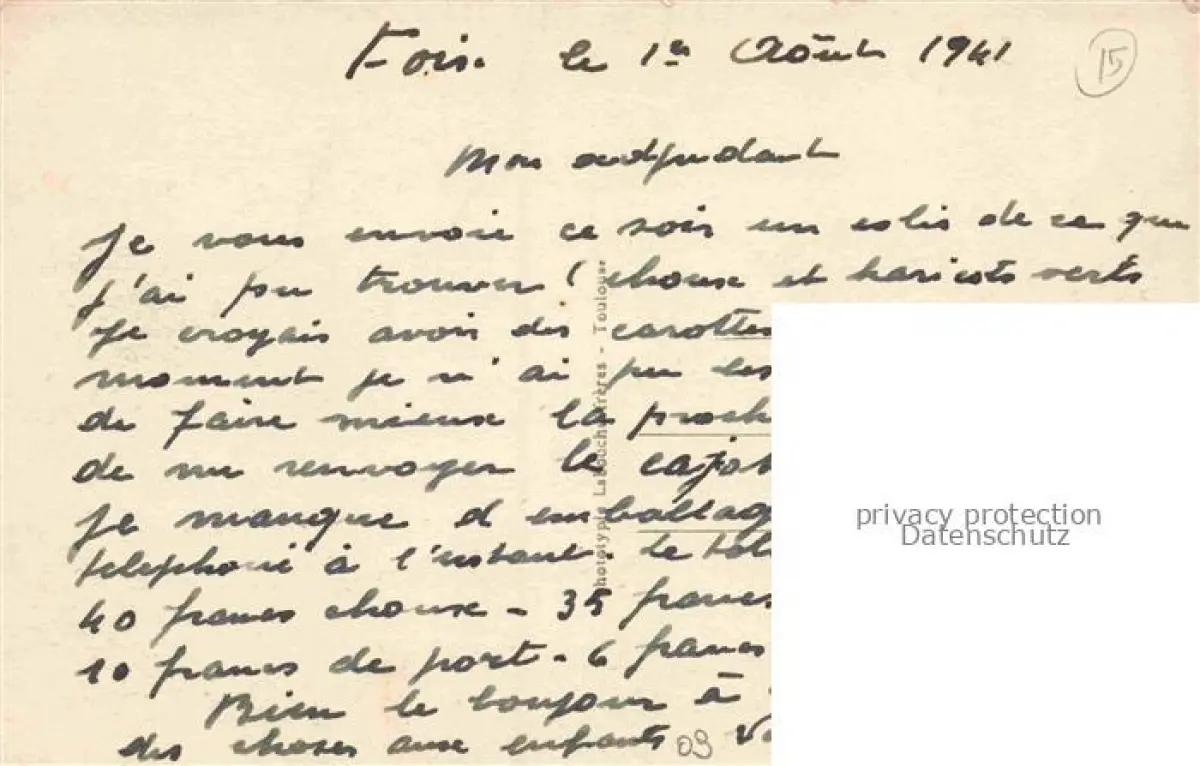 Foix. le 1er Août 1941
15
Mon adjudant
Je vous envoie ce soir un colis de ce que
j'ai pu trouver (choux et haricots verts
Je croyais avoir des carottes
moment je n'ai pu les
de faire mieux la proch
de me renvoyer le cajot
je manque d'emballag
telephoné à l'instant. le tol
40 francs choux - 35 francs
10 francs de port - 6 francs
Bien le bonjour à
des choses aux enfants
09
Phototypie Labouche Frères - Toulouse
privacy protection
Datenschutz